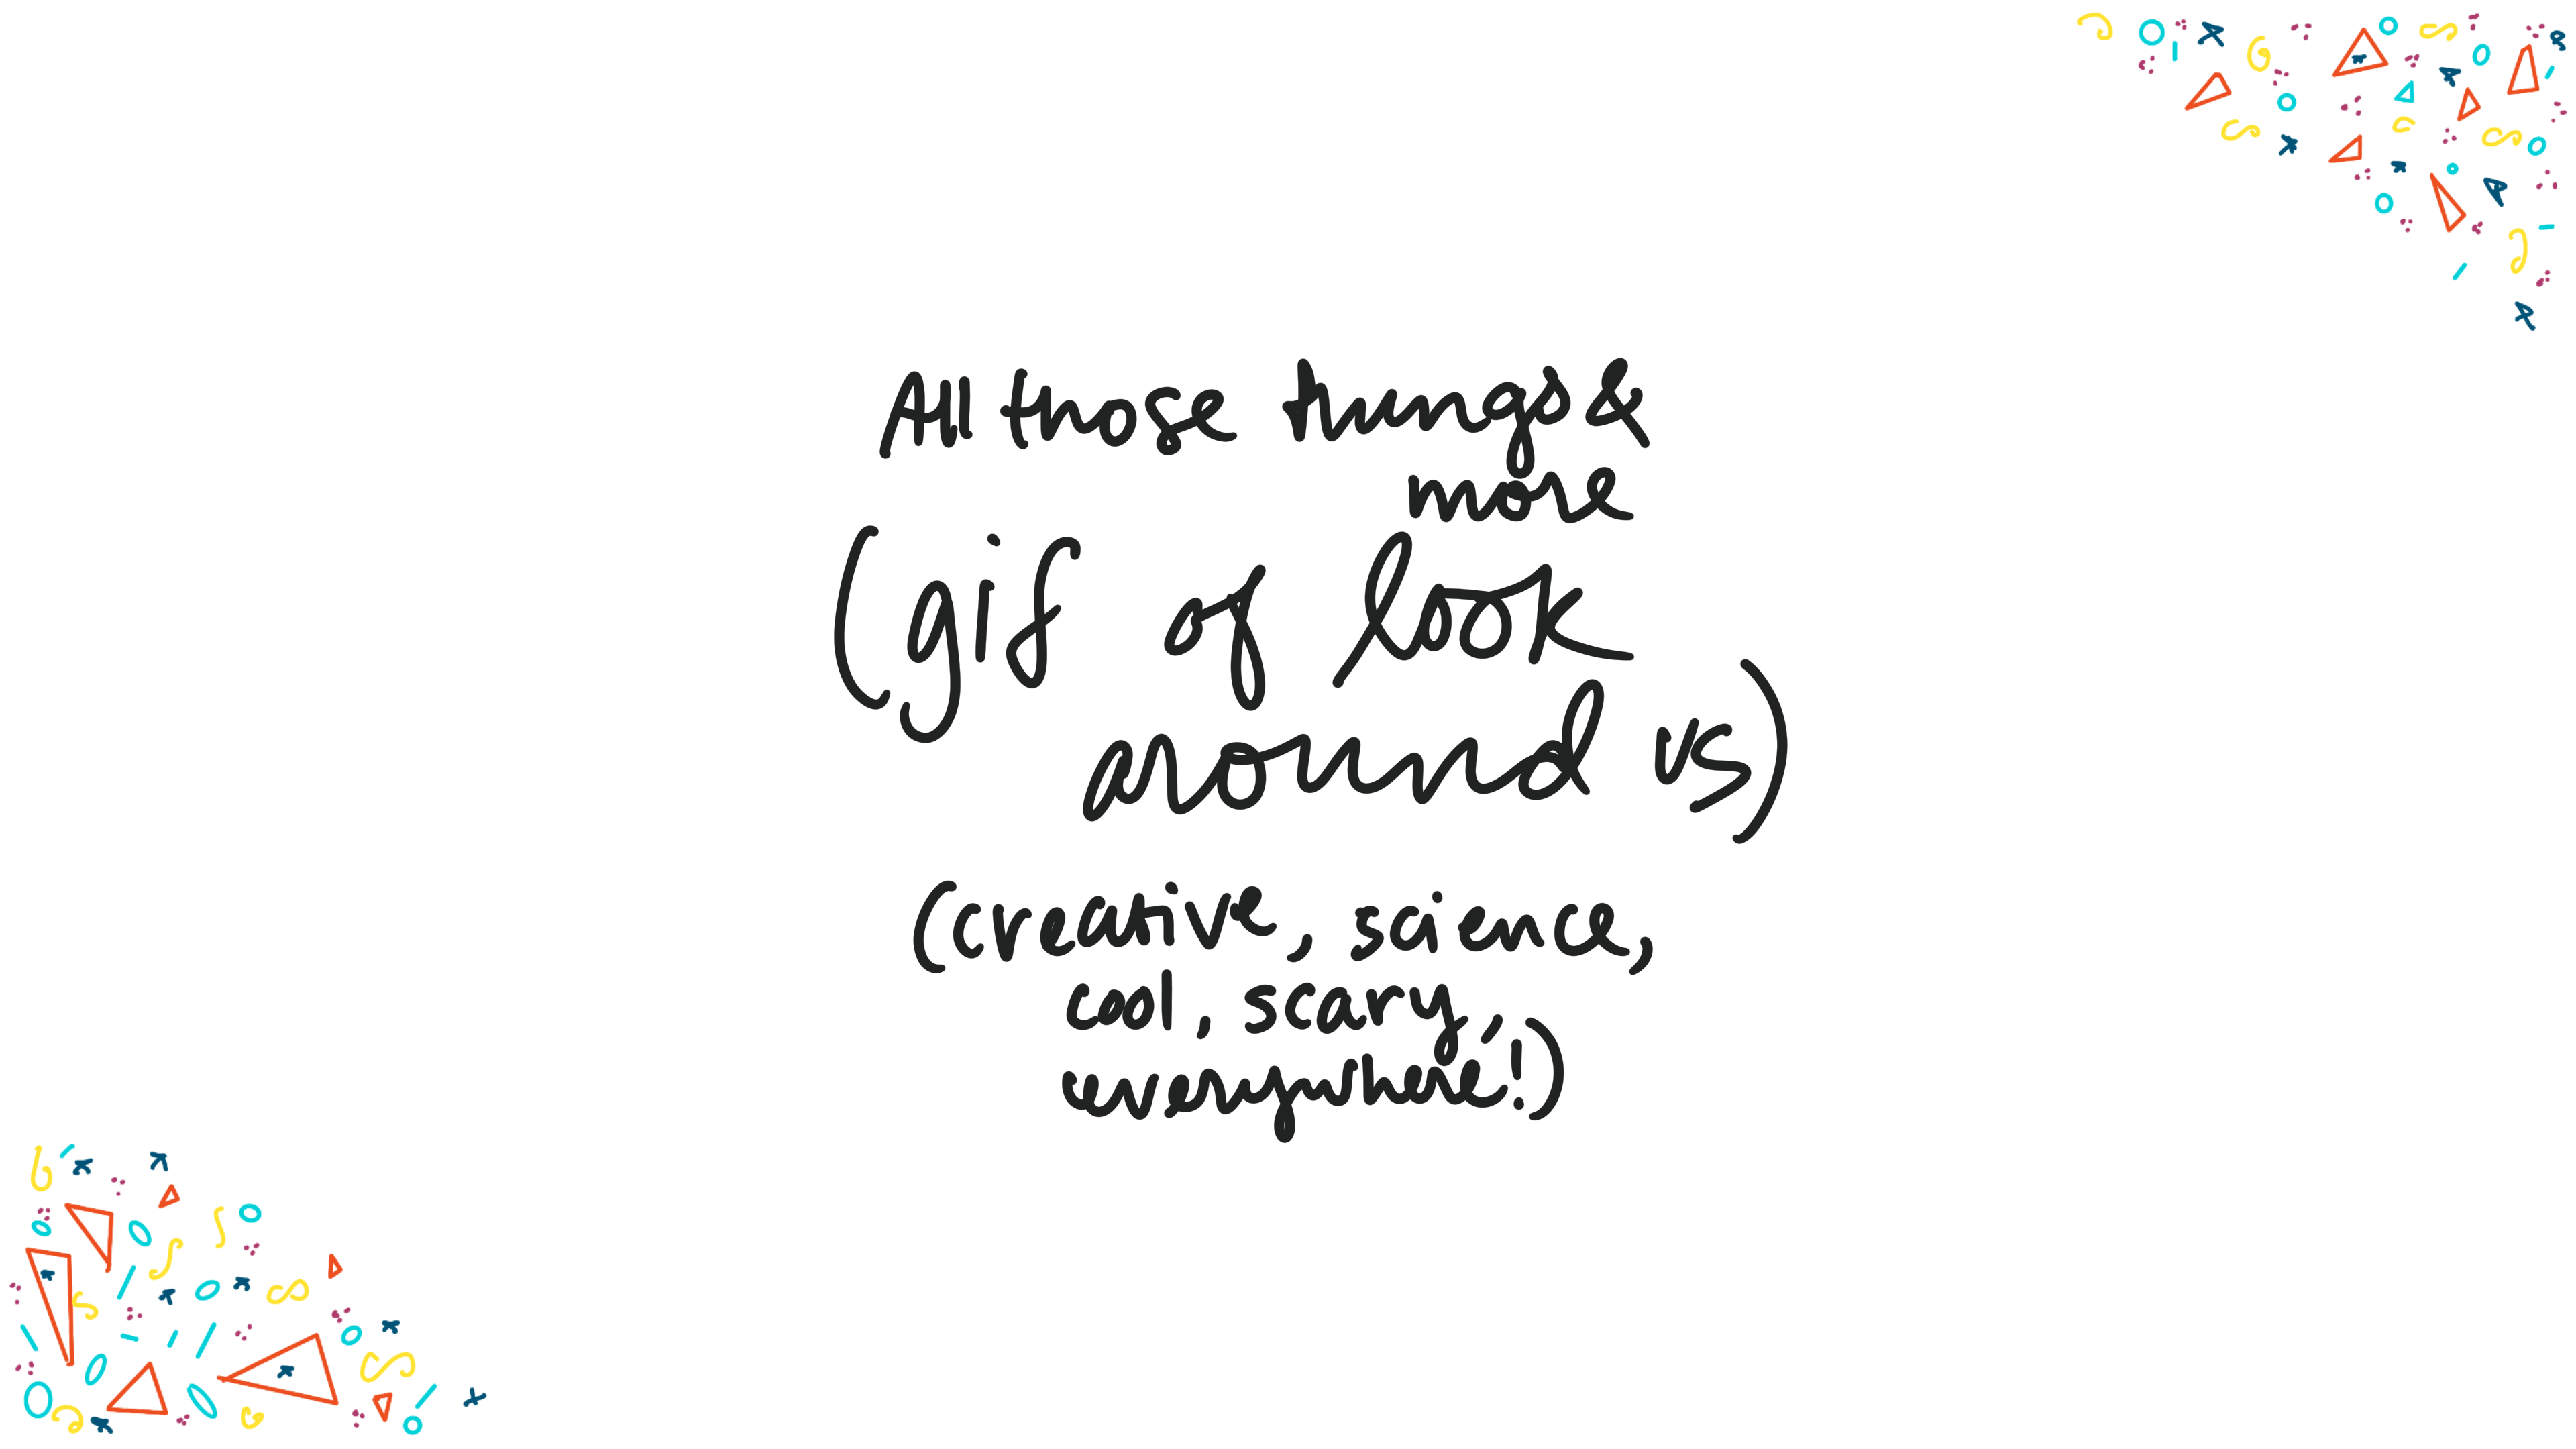 All those things &
more
(gif of look
around us)
(creative, science,
cool, scary,
everywhere!)